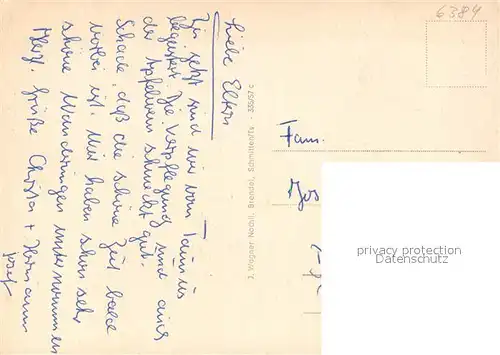 Liebe Eltern
Bis jetzt sind wir vom Taunus
begeistert. Die Verpflegung und auch
der Apfelwein schmeckt gut.
Schade, daß die schöne Zeit bald
vorbei ist. Wir haben schon sehr
schöne Wanderungen unternommen
Herzl. Grüße Christa + Hermann
Josef
T. Wagner Nachf. Brendel, Schmitten/Ts.
6384
Fam.
Jos
privacy protection
Datenschutz